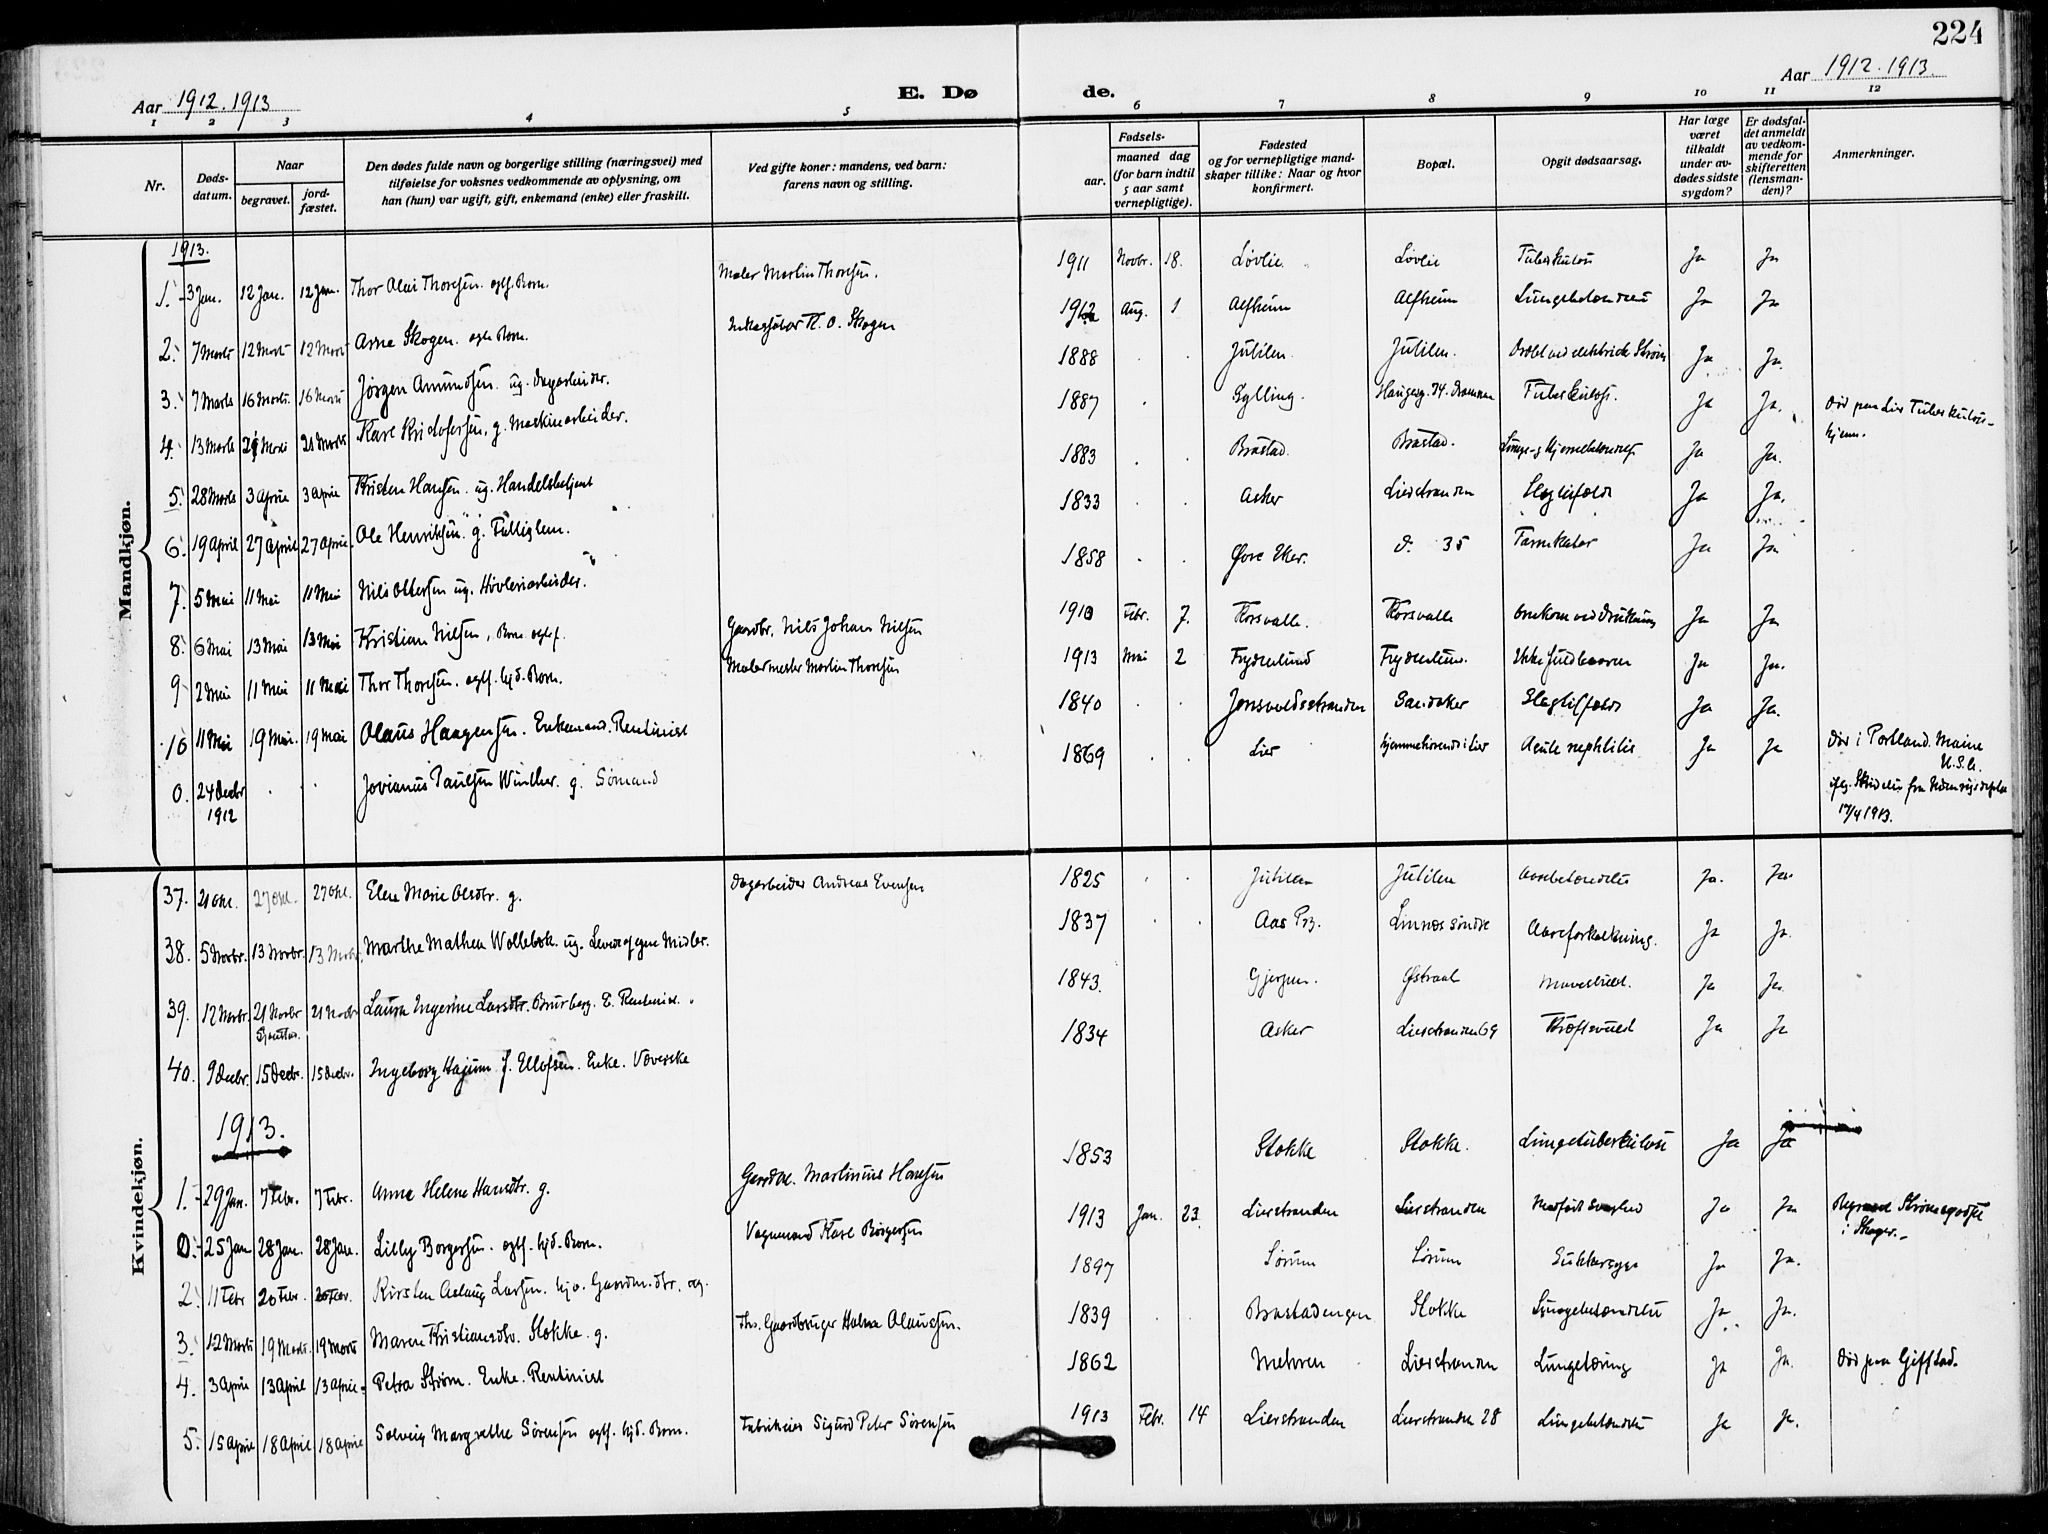 224
Aar 1912.1913
E. Dø
de.
Aar 1912.1913.
1 2 3 4 5 6 7 8 9 10 11 12
Nr.
Døds-
datum.
Naar
begravet.
jord-
fæstet.
Den dødes fulde navn og borgerlige stilling (næringsvei) med
tilføielse for voksnes vedkommende av oplysning, om
han (hun) var ugift, gift, enkemand (enke) eller fraskilt.
Ved gifte koner: mandens, ved barn:
farens navn og stilling.
Fødsels-
aar.
maaned dag
(for barn indtil
5 aar samt
vernepligtige).
Fødested
og for vernepligtige mand-
skaper tillike: Naar og hvor
konfirmert.
Bopæl.
Opgit dødsaarsag.
Har læge
været
tilkaldt
under av-
dødes sidste
sygdom?
Er dødsfal-
det anmeldt
av vedkom-
mende for
skifteretten
(lensman-
den)?
Anmerkninger.
Mandkjøn.
1913.
1. 3 Jan. 12 Jan. 12 Jan. Thor Olai Thoresen. egtf. Barn. Maler Martin Thoresen. 1911 Novbr. 18. Løvlie Løvlie Tuberkulose Ja Ja
2. 7 Marts 12 Marts 12 Marts Arne Skogen. egtf. Barn. O. Skogen 1912 Aug. 1 Alfheim Alfheim Lungebetændelse Ja Ja
3. 7 Marts 16 Marts 16 Marts Jørgen Amundsen. ug. Dagarbeider. 1888 Jutilen. Jutilen. Dræbt ved elektrisk Strøm Ja Ja.
4. 13 Marts 21 Marts 21 Marts Karl Kristofersen, g. Maskinarbeider. 1887 Gylling. Haugesg. 74. Drammen Tuberkulose. Ja Ja. Død paa Lier Tuberkulose-
hjem.
5. 28 Marts 3 April 3 April Kristen Hansen. ug. Handelsbetjent 1883 Brastad. Brastad. Lunge- og Hjernebetændelse Ja Ja.
6. 19 April 27 April 27 April Ole Henriksen. g. Fattiglem. 1833 Asker Lierstranden Slagtilfælde Ja Ja.
7. 5 Mai 11 Mai 11 Mai Nils Ottersen ug. Høvleriarbeider. 1858 Øvre Eker. d. 35 Tarmkatar Ja Ja
8. 6 Mai 13 Mai 13 Mai Kristian Nilsen, Barn egtef. Gaardbr. Nils Johan Nilsen 1910 Febr. 7. Korsvalle. Korsvalle Omkom ved Drukning Ja Ja
9 2 Mai 11 Mai 11 Mai Thor Thoresen. egtf. hjd. Barn. Malermester Martin Thoresen 1913 Mai 2 Frydenlund Frydenlund. Ikke fuldbaaren Ja Ja.
10 11 Mai 19 Mai. 19 Mai Olaus Haagensen. Enkemand. Rentinist 1840 Jensvoldsstranden Sandaker Slagtilfælde Ja Ja.
0. 24 Decbr
1912 Jovianus Paulsen Winther. g. Sømand 1869 Lier hjemmehørende i Lier Acute nephtitis Ja Ja Død i Portland. Maine
U.S.A.
ifølg. Skrivelse fra
17/4 1913.
Kvindekjøn.
37. 21 Okt. 27 Okt. 27 Okt. Elen Marie Olsdtr. g. Dagarbeider Andreas Evensen 1825 Jutilen Jutilen Aarebetændelse Ja. Ja.
38. 5 Novbr. 13 Novbr. 13 Novbr. Marthe Mathea Wollebæk. ug. Lever af egne Midler. 1837 Aas Pr. Linnes søndre Aareforkalkning. Ja Ja.
39. 12 Novbr. 21 Novbr 21 Novbr Laura Ingerine Larsdtr. Brurberg. E. Rentenist. 1843. Gjerpen. Østraat Mavekræft. Ja Ja.
40. 9 Decbr. 15 Decbr. 15 Decbr. Ingeborg f. Ellefsen. Enke. Væverske 1834 Asker Lierstranden 69 Kræftsvulst Ja Ja
1913.
1. 29 Jan. 7 Febr. 7 Febr. Anne Helene Hansdtr. g. Gaardbr. Martinius Hansen 1853 Stokke Stokke. Lungetuberkulose Ja Ja
0. 25 Jan 28 Jan. 28 Jan. Lilly Borgersen. egtf. hjd. Barn. Vognmand Karl Borgersen 1913 Jan. 23. Lierstranden Lierstranden Medfødt Svaghed Ja Ja Begravet Strømsgodset
i Skoger.
2. 11 Febr 20 Febr. 20 Febr. Kirsten Aslaug Larsen. hjv. Gaardm. dtr. ug. 1897 Sørum Sørum Sukkersyge Ja Ja.
3. 12 Marts 19 Marts. 19 Marts Maren Kristiansdtr. Stokke. g. Fhv. Gaardbruger Halvor Olaussen. 1839 Brastadengen Stokke Lungebetændelse Ja Ja.
4. 3 April 13 April 13 April Petra Strøm. Enke. Rentinist 1862 Mehren Lierstranden Lungetæring Ja Ja. Død paa Gifstad.
5. 15 April 18 April 18 April Solveig Margrethe Sørensen egtf. hjd. Barn. Fabrikeier Sigurd Peter Sørensen 1913 Febr. 14 Lierstranden Lierstranden 28 Lungebetændelse Ja Ja.